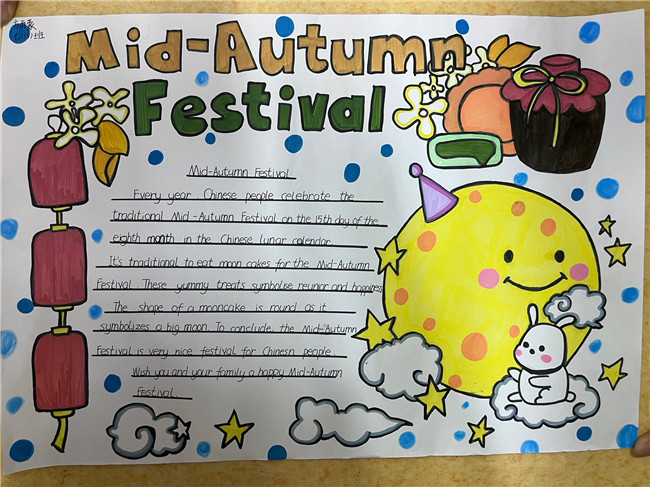 Mid-Autumn
Festival
Mid-Autumn Festival
Every year Chinese people celebrate the
traditional Mid-Autumn Festival on the 15th day of the
eighth month in the Chinese lunar calendar.
It's traditional to eat moon cakes for the Mid-Autumn
Festival. These yummy treats symbolise reunior and happiness
The shape of a mooncake is round as it
symbolizes a big moon. To conclude, the Mid-Autumn
Festival is very nice festival for Chinesn people.
Wish you and your family a happy Mid-Autumn
Festival.